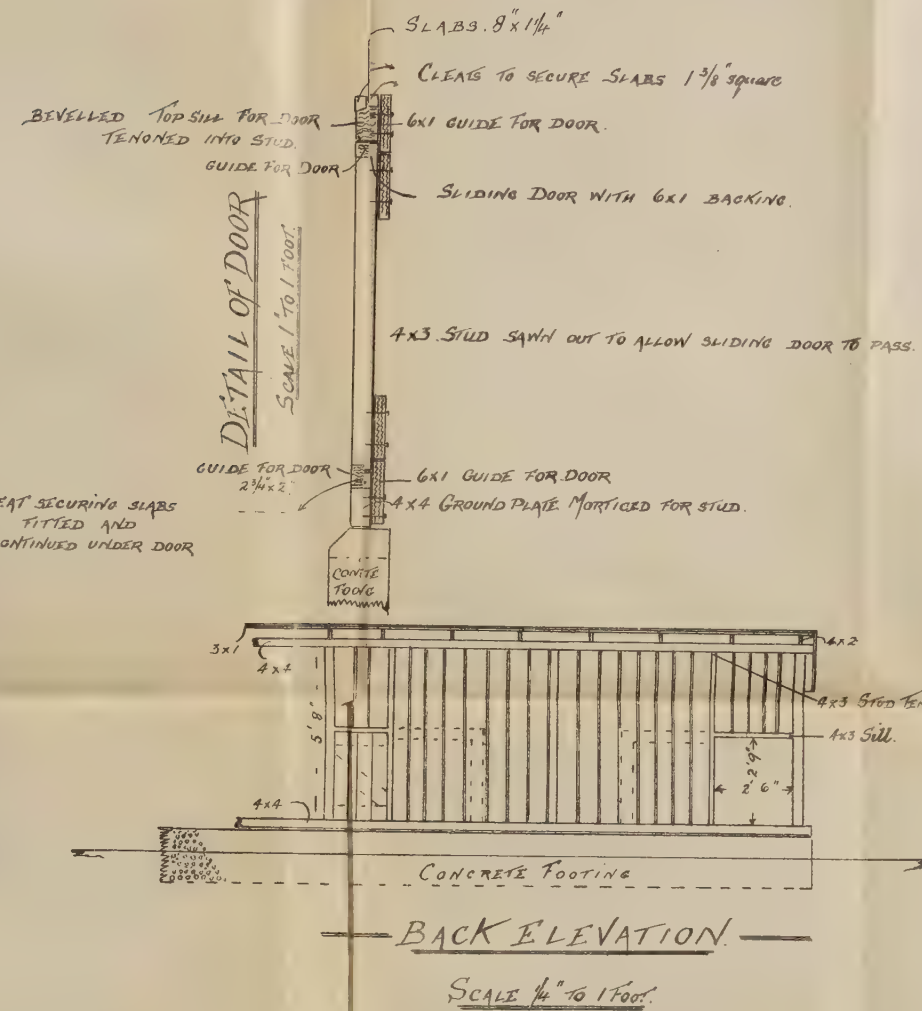 SLABS. 8" x 1 1/4"
CLEATS TO SECURE SLABS 1 3/8" square
BEVELLED TOP SILL FOR DOOR
TENONED INTO STUD.
6x1 GUIDE FOR DOOR.
GUIDE FOR DOOR
SLIDING DOOR WITH 6x1 BACKING.
DETAIL OF DOOR
SCALE 1" TO 1 FOOT.
4x3 STUD SAWN OUT TO ALLOW SLIDING DOOR TO PASS.
GUIDE FOR DOOR
2 3/4" x 2"
6x1 GUIDE FOR DOOR
4x4 GROUND PLATE MORTICED FOR STUD.
EAT SECURING SLABS
FITTED AND
ONTINUED UNDER DOOR
3x1
4x4
4x2
5' 8"
4x3 STUD TEN
4x3 Sill.
2' 9"
2' 6"
4x4
CONCRETE FOOTING
BACK ELEVATION.
SCALE 1/4" TO 1 FOOT.